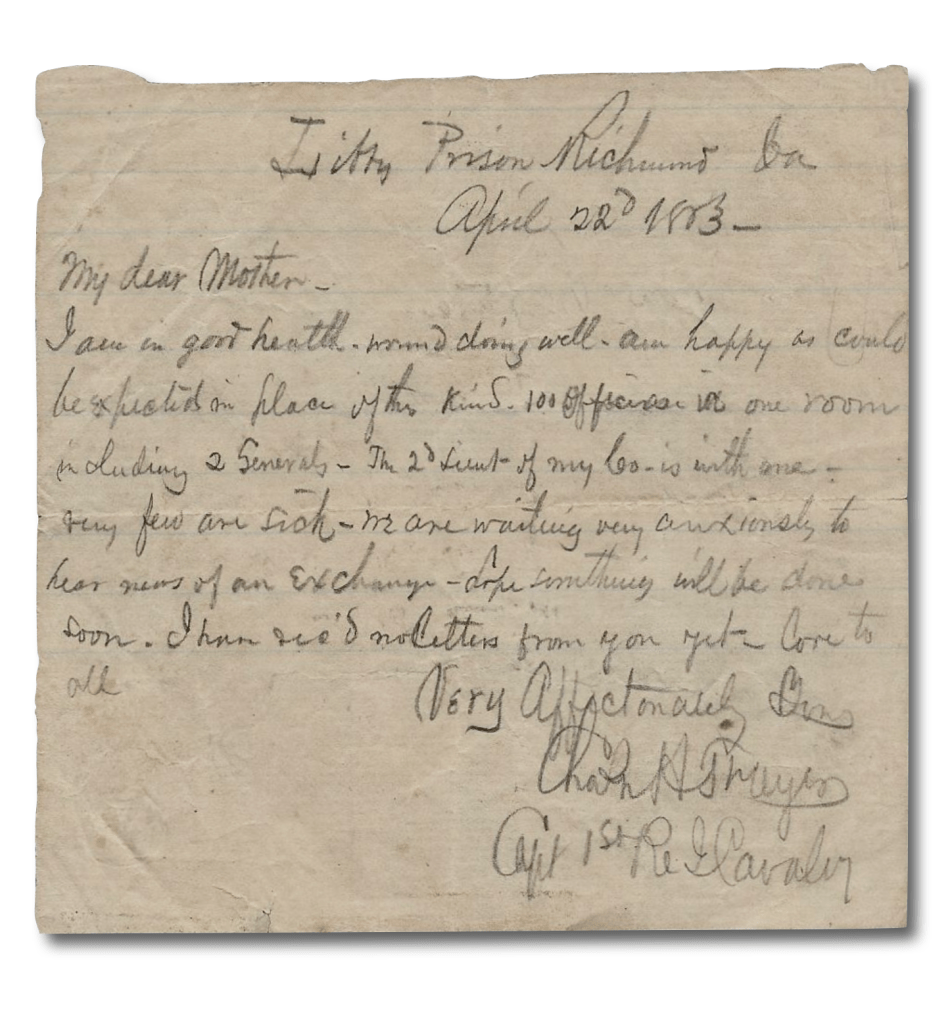 Libby Prison Richmond Va
April 22d 1863 –
My dear Mother –
I am in good health – wound doing well – am happy as could
be expected in place of this kind. 100 officers in one room
including 2 Generals – The 2d Lieut of my Co – is with me –
very few are sick – we are waiting very anxiously to
hear news of an Exchange – hope something will be done
soon. I have rec'd no letters from you yet – Love to
all
Very Affectonately Yours
H Thayer
Capt 1st R I Cavalry